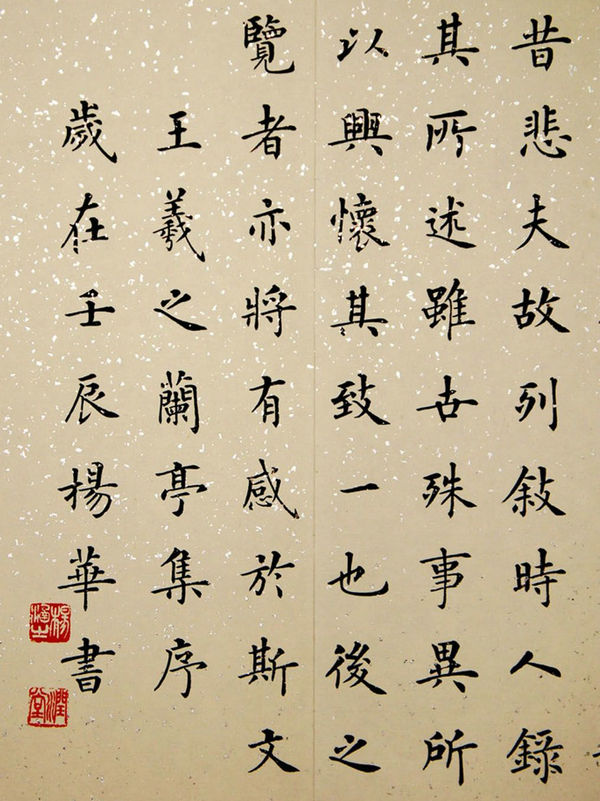 昔悲夫故列敍時人錄
其所述雖古殊事異所
以興懷其致一也後之
覽者亦將有感於斯文
王羲之蘭亭集序
歲在壬辰楊華書